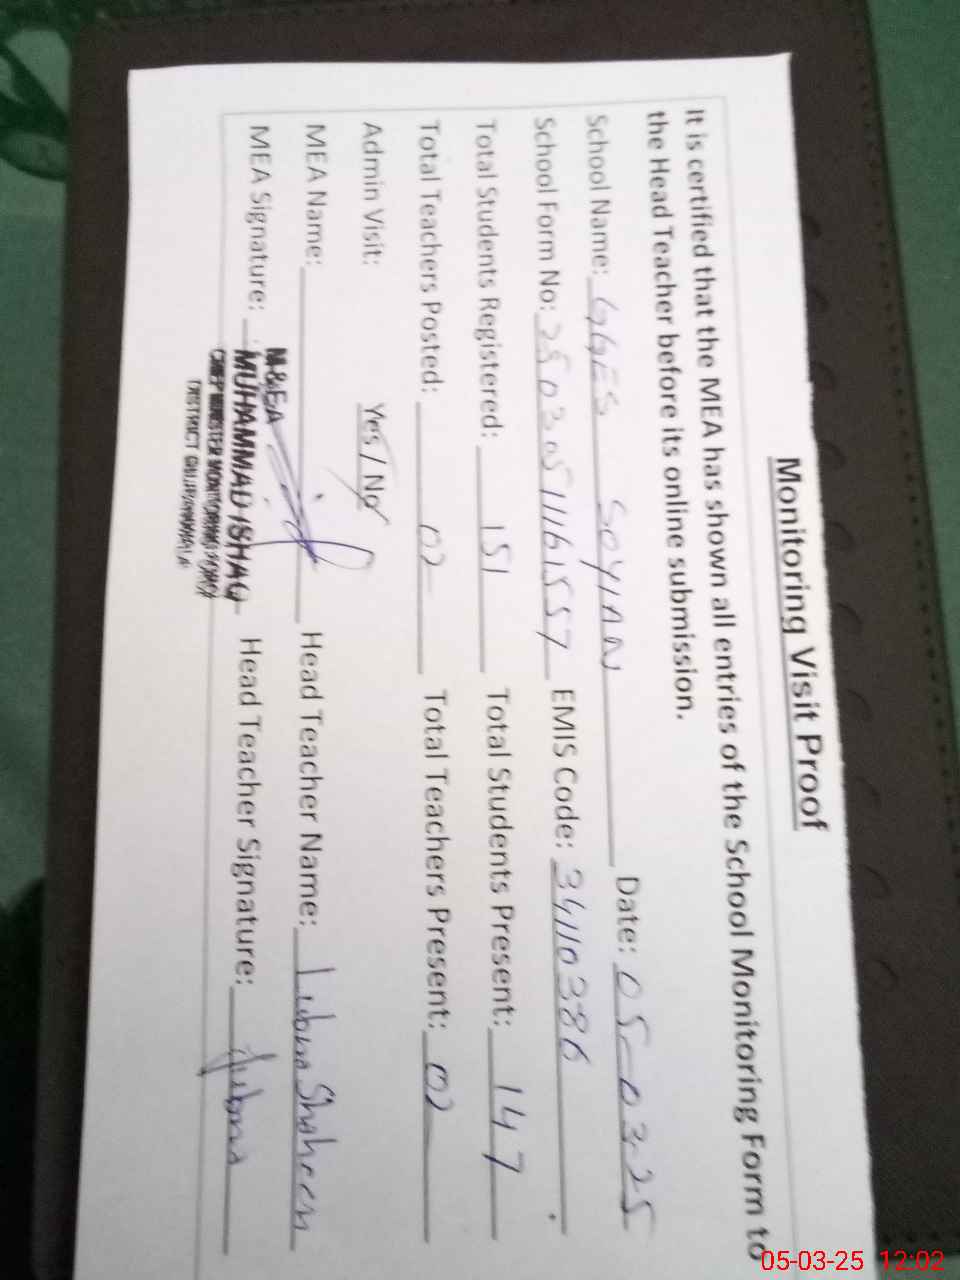 Monitoring Visit Proof
It is certified that the MEA has shown all entries of the School Monitoring Form to
the Head Teacher before its online submission.
School Name: GGES SOYIAN Date: 05-03-25
School Form No: 250305111161557 EMIS Code: 34110386
Total Students Registered: 151 Total Students Present: 147
Total Teachers Posted: 02 Total Teachers Present: 02
Admin Visit: Yes / No
MEA Name: Head Teacher Name: Lubna Shaheen
MEA Signature: Head Teacher Signature: Lubna
M&EA
MUHAMMAD ISHAQ
CHIEF MINISTER MONITORING FORCE
DISTRICT GUJRANWALA
05-03-25 12:02